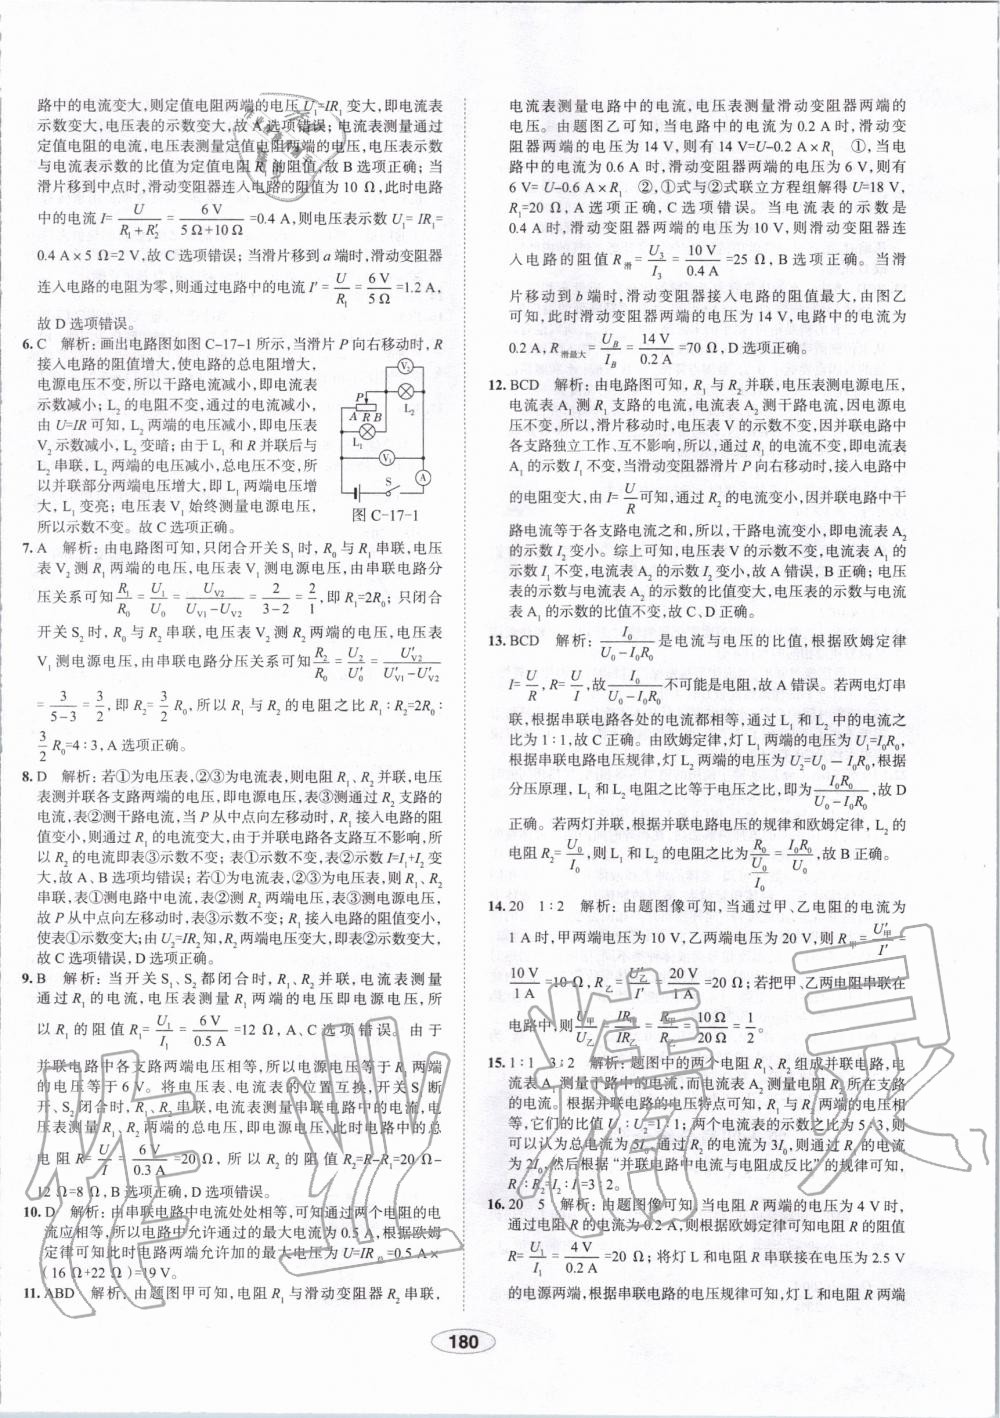 路中的电流变大,则定值电阻两端的电压 U₁=IR₁ 变大,即电流表
示数变大,电压表的示数变大,故 A 选项错误;电流表测量通过
定值电阻的电流,电压表测量定值电阻两端的电压,电压表示数
与电流表示数的比值为定值电阻 R₁ 的阻值,故 B 选项正确;当
滑片移到中点时,滑动变阻器连入电路的阻值为 10 Ω,此时电路
中的电流 I=U/(R₁+R₂′)=6 V/(5 Ω+10 Ω)=0.4 A,则电压表示数 U₁=IR₁=
0.4 A×5 Ω=2 V,故 C 选项错误;当滑片移到 a 端时,滑动变阻器
连入电路的电阻为零,则通过电路中的电流 I′=U/R₁=6 V/5 Ω=1.2 A,
故 D 选项错误。
6. C 解析:画出电路图如图 C-17-1 所示,当滑片 P 向右移动时,R
接入电路的阻值增大,使电路的总电阻增大,
电源电压不变,所以干路电流减小,即电流表
示数减小;L₂ 的电阻不变,通过的电流减小,
由 U=IR 可知,L₂ 两端的电压减小,即电压表
V₂ 示数减小,L₂ 变暗;由于 L₁ 和 R 并联后与
L₂ 串联,L₂ 两端的电压减小,总电压不变,所
以并联部分两端电压增大,即 L₁ 两端电压增
大,L₁ 变亮;电压表 V₁ 始终测量电源电压,
所以示数不变。故 C 选项正确。
V₂
L₂
P
A R B
L₁
V₁
A
S
图 C-17-1
7. A 解析:由电路图可知,只闭合开关 S₁ 时,R₀ 与 R₁ 串联,电压
表 V₂ 测 R₁ 两端的电压,电压表 V₁ 测电源电压,由串联电路分
压关系可知 R₁/R₀=U₁/U₀=U_V2/(U_V1−U_V2)=2/(3−2)=2/1,即 R₁=2R₀;只闭合
开关 S₂ 时,R₀ 与 R₂ 串联,电压表 V₂ 测 R₂ 两端的电压,电压表
V₁ 测电源电压,由串联电路分压关系可知 R₂/R₀=U₂′/U₀′=U′_V2/(U′_V1−U′_V2)
=3/(5−3)=3/2,即 R₂=3/2 R₀,所以 R₁ 与 R₂ 的电阻之比 R₁∶R₂=2R₀∶
3/2 R₀=4∶3,A 选项正确。
8. D 解析:若①为电压表,②③为电流表,则电阻 R₁、R₂ 并联,电压
表测并联各支路两端的电压,即电源电压,表③测通过 R₂ 支路的
电流,表②测干路电流,当 P 从中点向左移动时,R₁ 接入电路的阻
值变小,则通过 R₁ 的电流变大,由于并联电路各支路互不影响,所
以 R₂ 的电流即表③示数不变;表①示数不变,表②示数 I=I₁+I₂ 变
大,故 A、B 选项均错误;若①为电流表,②③为电压表,则 R₁、R₂
串联,表①测电路中电流,表②测 R₂ 两端电压,表③测电源电压,
故 P 从中点向左移动时,表③示数不变;R₁ 接入电路的阻值变小,
使表①示数变大;由 U₂=IR₂ 知,R₂ 两端电压变大,即表②示数变大,
故 C 选项错误,D 选项正确。
9. B 解析:当开关 S₁、S₂ 都闭合时,R₁、R₂ 并联,电流表测量
通过 R₁ 的电流,电压表测量 R₁ 两端的电压即电源电压,所
以 R₁ 的阻值 R₁=U₁/I₁=6 V/0.5 A=12 Ω,A、C 选项错误。由于
并联电路中各支路两端电压相等,所以电源电压等于 R₁ 两端
的电压等于 6 V。将电压表、电流表的位置互换,开关 S₁ 断
开、S₂ 闭合时,R₁、R₂ 串联,电流表测量串联电路中的电流,电
压表测量 R₁、R₂ 两端的总电压,即电源电压,此时电路中的总
电阻 R=U/I=6 V/0.3 A=20 Ω,所以 R₂ 的阻值 R₂=R−R₁=20 Ω−
12 Ω=8 Ω,B 选项正确,D 选项错误。
10. D 解析:由串联电路中电流处处相等,可知通过两个电阻的电
流应相等,所以电路中允许通过的最大电流为 0.5 A;根据欧姆
定律可知此时电路两端允许加的最大电压为 U=IR总=0.5 A×
(16 Ω+22 Ω)=19 V。
11. ABD 解析:由题图甲可知,电阻 R₁ 与滑动变阻器 R₂ 串联,
电流表测量电路中的电流,电压表测量滑动变阻器两端的
电压。由题图乙可知,当电路中的电流为 0.2 A 时,滑动变
阻器两端的电压为 14 V,则有 14 V=U−0.2 A×R₁ ①,当电
路中的电流为 0.6 A 时,滑动变阻器两端的电压为 6 V,则有
6 V=U−0.6 A×R₁ ②,①式与②式联立方程组解得 U=18 V,
R₁=20 Ω,A 选项正确,C 选项错误。当电流表的示数是
0.4 A 时,滑动变阻器两端的电压为 10 V,则滑动变阻器连
入电路的阻值 R滑=U₃/I₃=10 V/0.4 A=25 Ω,B 选项正确。当滑
片移动到 b 端时,滑动变阻器接入电路的阻值最大,由图乙
可知,此时滑动变阻器两端的电压为 14 V,电路中的电流为
0.2 A,R滑最大=U_B/I_B=14 V/0.2 A=70 Ω,D 选项正确。
12. BCD 解析:由电路图可知,R₁ 与 R₂ 并联,电压表测电源电压,
电流表 A₁ 测 R₁ 支路的电流,电流表 A₂ 测干路电流,因电源电
压不变,所以,滑片移动时,电压表 V 的示数不变,因并联电路中
各支路独立工作、互不影响,所以,通过 R₁ 的电流不变,即电流表
A₁ 的示数 I₁ 不变,当滑动变阻器滑片 P 向右移动时,接入电路中
的电阻变大,由 I=U/R 可知,通过 R₂ 的电流变小,因并联电路中干
路电流等于各支路电流之和,所以,干路电流变小,即电流表 A₂
的示数 I₂ 变小。综上可知,电压表 V 的示数不变,电流表 A₁ 的
示数 I₁ 不变,电流表 A₂ 的示数 I₂ 变小,故 A 错误,B 正确;电压
表的示数与电流表 A₂ 的示数的比值变大,电压表的示数与电流
表 A₁ 的示数的比值不变,故 C、D 正确。
13. BCD 解析:I₀/(U₀−I₀R₀) 是电流与电压的比值,根据欧姆定律
I=U/R,R=U/I,故 I₀/(U₀−I₀R₀) 不可能是电阻,故 A 错误。若两电灯串
联,根据串联电路各处的电流都相等,通过 L₁ 和 L₂ 中的电流之
比为 1∶1,故 C 正确。由欧姆定律,灯 L₁ 两端的电压为 U₁=I₀R₀,
根据串联电路电压规律,灯 L₂ 两端的电压为 U₂=U₀−I₀R₀,根据
分压原理,L₁ 和 L₂ 电阻之比等于电压之比,即为 I₀R₀/(U₀−I₀R₀),故 D
正确。若两灯并联,根据并联电路电压的规律和欧姆定律,L₂ 的
电阻 R₂=U₀/I₀,则 L₁ 和 L₂ 的电阻之比为 R₀/(U₀/I₀)=I₀R₀/U₀,故 B 正确。
14. 20 1∶2 解析:由题图像可知,当通过甲、乙电阻的电流为
1 A 时,甲两端电压为 10 V,乙两端电压为 20 V,则 R甲=U甲′/I′=
10 V/1 A=10 Ω,R乙=U乙′/I′=20 V/1 A=20 Ω;若把甲、乙两电阻串联在
电路中,则 U甲/U乙=IR甲/IR乙=R甲/R乙=10 Ω/20 Ω=1/2。
15. 1∶1 3∶2 解析:题图中的两个电阻 R₁、R₂ 组成并联电路,电
流表 A₁ 测量干路中的电流,而电流表 A₂ 测量电阻 R₂ 所在支路
的电流。根据并联电路的电压特点可知,R₁ 与 R₂ 两端的电压相
等,它们的比值 U₁∶U₂=1∶1;两个电流表的示数之比为 5∶3,则
可以认为总电流为 5I₀,通过 R₂ 的电流为 3I₀,则通过 R₁ 的电流
为 2I₀,然后根据“并联电路中电流与电阻成反比”的规律可知,
R₁∶R₂=I₂∶I₁=3∶2。
16. 20 5 解析:由题图像可知,当电阻 R 两端的电压为 4 V 时,
通过电阻的电流为 0.2 A,根据欧姆定律可知电阻 R 的阻值
R=U₁/I₁=4 V/0.2 A=20 Ω;将灯 L 和电阻 R 串联接在电压为 2.5 V
的电源两端,根据串联电路的电压规律可知,灯 L 和电阻 R 两端
180
作业精灵